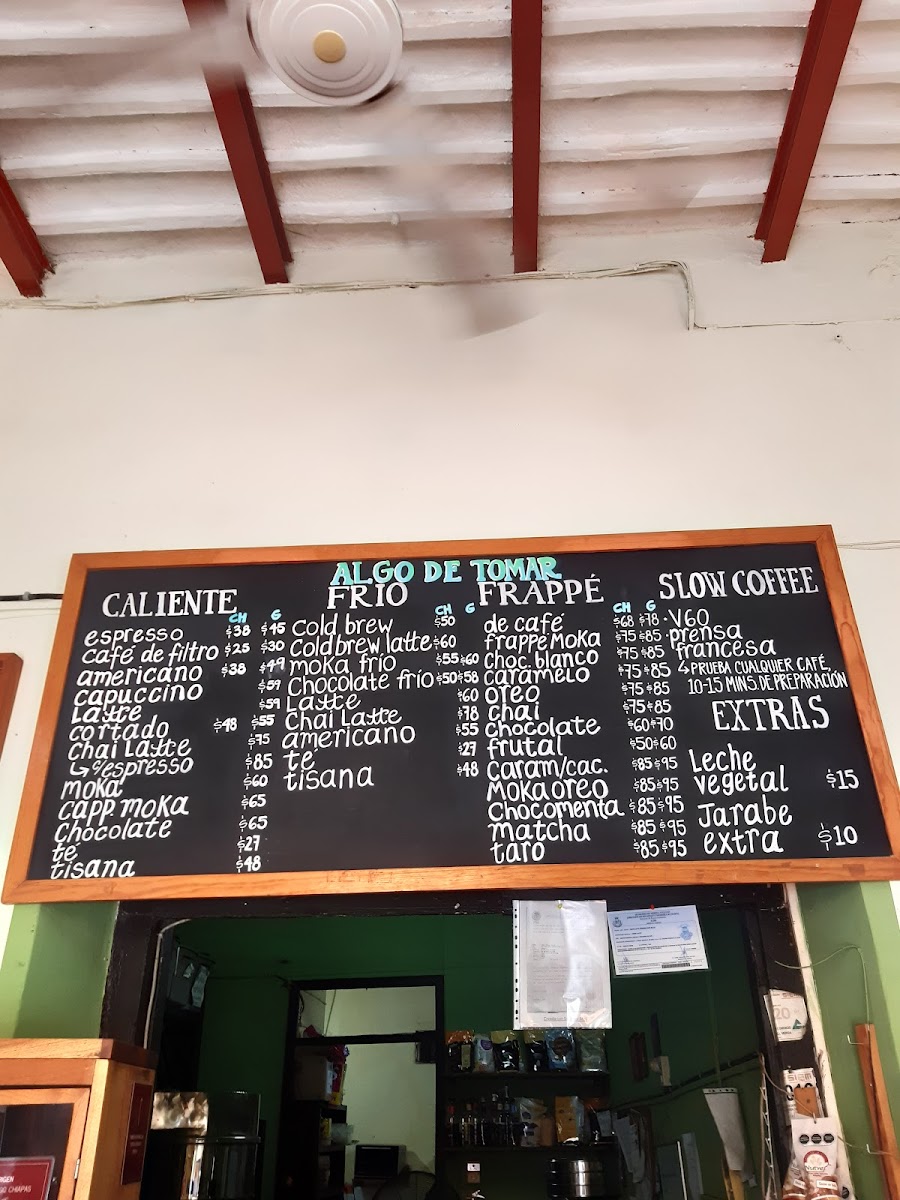 ALGO DE TOMAR
CALIENTE
CH G
espresso $38 $45
café de filtro $25 $30
americano $38 $49
capuccino $59
Latte $59
cortado $48 $55
chai Latte $75
↳ c/espresso $85
moka $60
capp. moka $65
chocolate $65
té $27
tisana $48
FRÍO
CH G
cold brew $50
cold brew latte $60
moka frío $55 $60
chocolate frío $50 $58
Latte $60
chai Latte $78
americano $55
té $27
tisana $48
FRAPPÉ
CH G
de café $68 $78
frappé Moka $75 $85
choc. blanco $75 $85
caramelo $75 $85
oreo $75 $85
chai $75 $85
chocolate $60 $70
frutal $50 $60
caram/cac. $85 $95
Moka oreo $85 $95
chocomenta $85 $95
matcha $85 $95
taro $85 $95
SLOW COFFEE
· V60
· prensa
francesa
↳ PRUEBA CUALQUIER CAFÉ,
10-15 MINS. DE PREPARACIÓN
EXTRAS
Leche
vegetal $15
Jarabe
extra $10